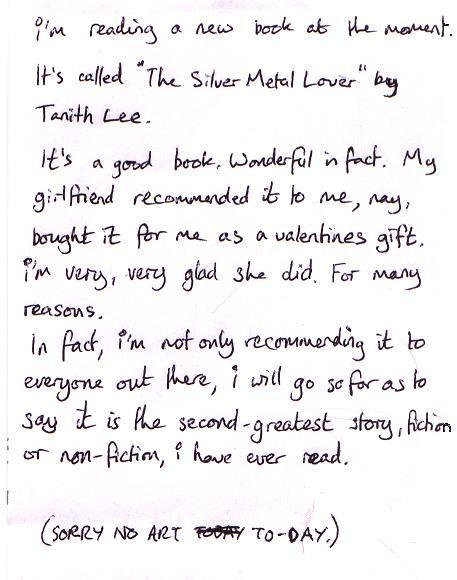 i'm reading a new book at the moment.
It's called "The Silver Metal Lover" by
Tanith Lee.
It's a good book. Wonderful in fact. My
girlfriend recommended it to me, nay,
bought it for me as a valentines gift.
i'm very, very glad she did. For many
reasons.
In fact, i'm not only recommending it to
everyone out there, i will go so far as to
say it is the second-greatest story, fiction
or non-fiction, i have ever read.
(SORRY NO ART TODAY TO-DAY.)